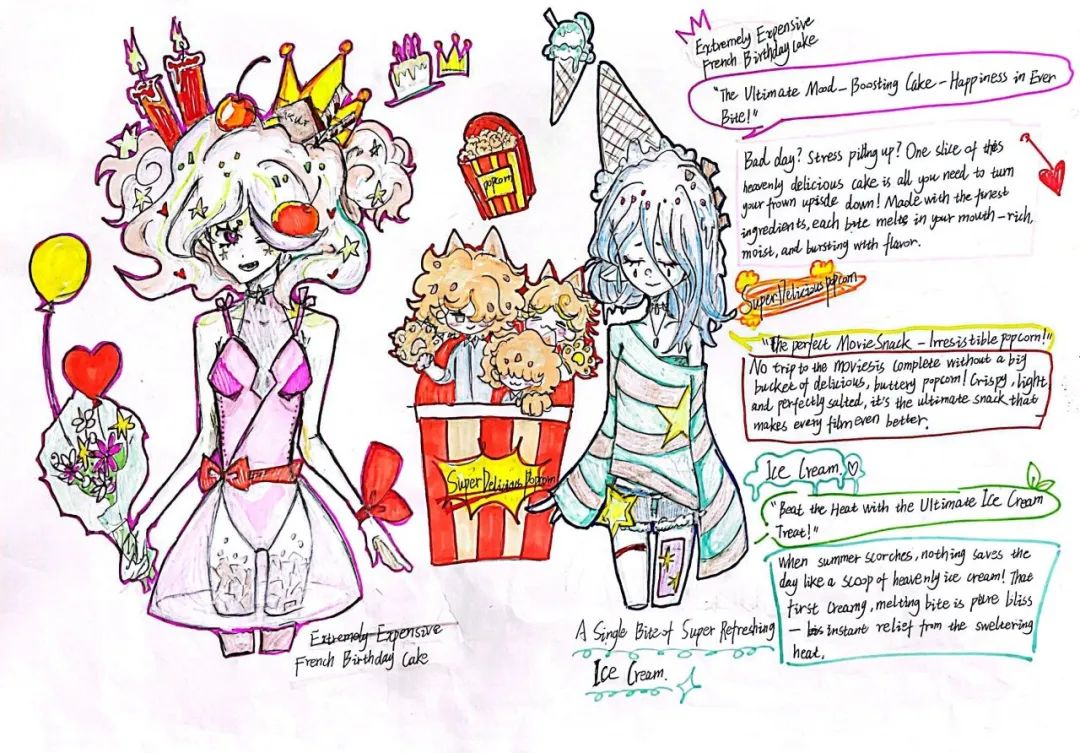 Extremely Expensive
French Birthday Cake
"The Ultimate Mood-Boosting Cake-Happiness in Ever
Bite!"
Bad day? Stress piling up? One slice of this
heavenly delicious cake is all you need to turn
your frown upside down! Made with the finest
ingredients, each bite melts in your mouth-rich,
moist, and bursting with flavor.
Super Delicious popcorn
"The perfect Movie Snack - Irresistible popcorn!"
No trip to the movies is complete without a big
bucket of delicious, buttery popcorn! Crispy, light
and perfectly salted, it's the ultimate snack that
makes every film even better.
Ice Cream.
"Beat the Heat with the Ultimate Ice Cream
Treat!"
When summer scorches, nothing saves the
day like a scoop of heavenly ice cream! That
first creamy, melting bite is pure bliss
- instant relief from the sweltering
heat.
popcorn
Super Delicious Popcorn
Extremely Expensive
French Birthday Cake
A Single Bite of Super Refreshing
Ice Cream.